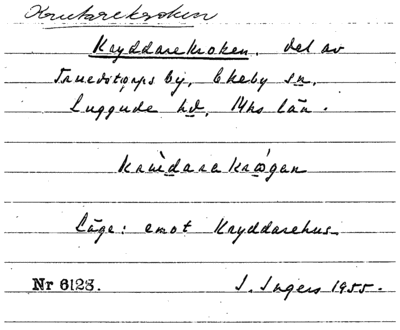 Krutarekroken
Kryddarekroken, del av
Truedstorps by, Ekeby sn,
Luggude hd, Mhs län.
Krùìdarekrǻogan
Läge: emot Kryddarehus
Nr 6128. I. Ingers 1955.